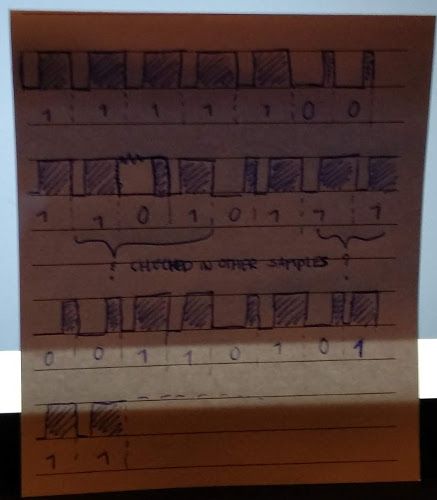 1 1 1 1 1 0 0
1 1 0 1 0 1 1 1
? CHECKED IN OTHER SAMPLES ?
0 0 1 1 0 1 0 1
1 1